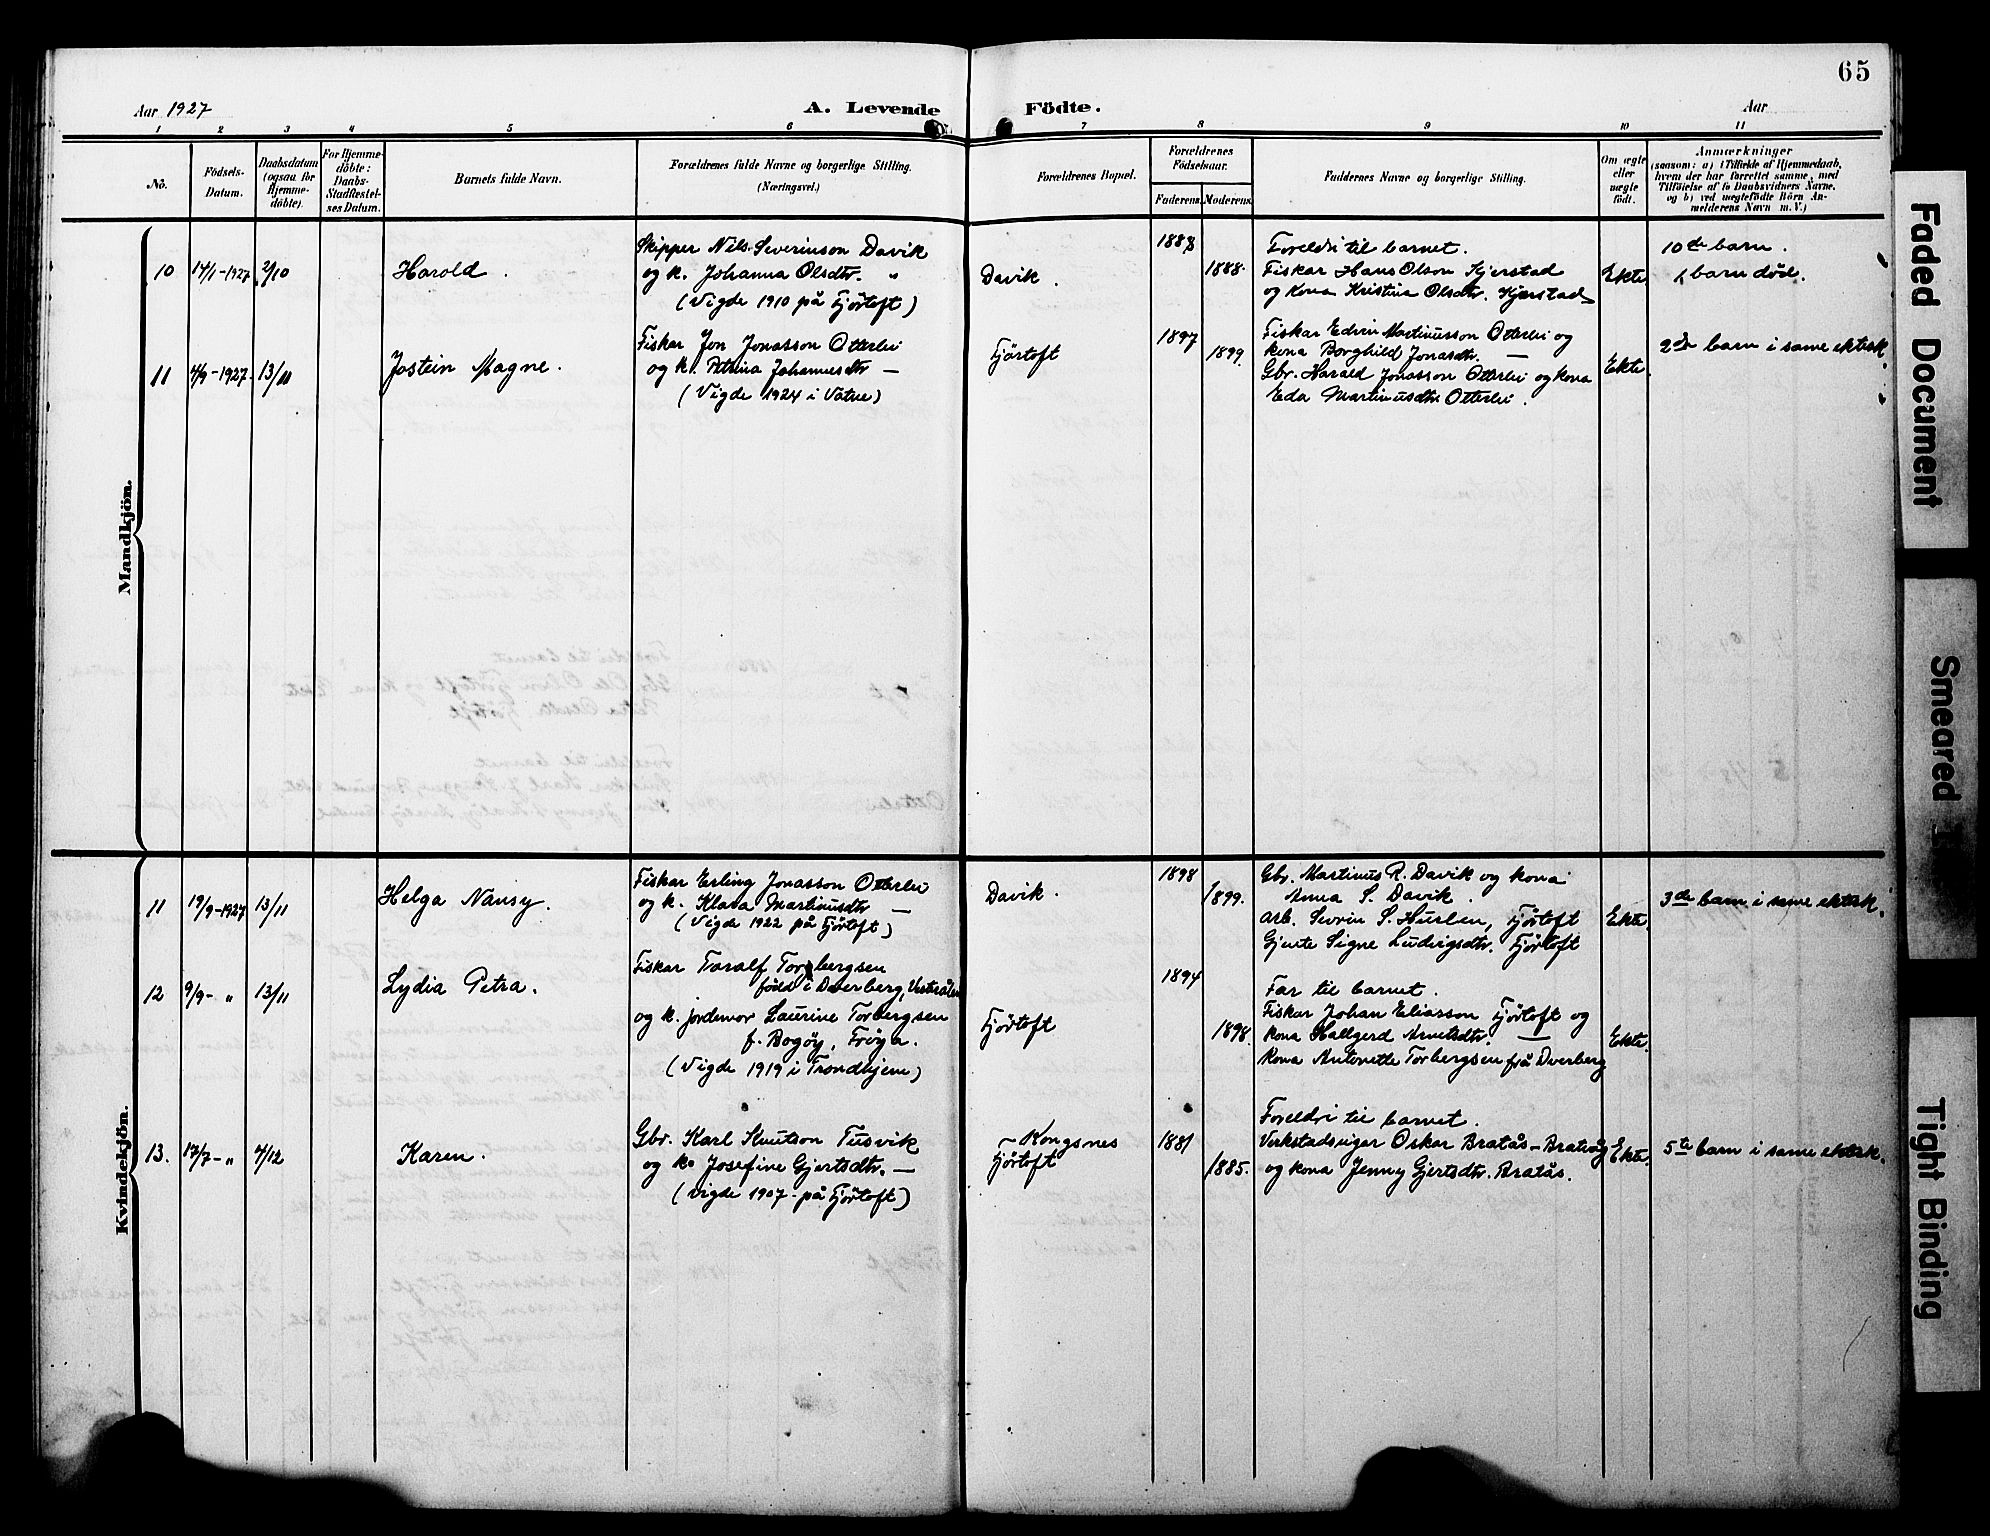 65
Aar 1927
A. Levende Födte.
Aar
1 2 3 4 5 6 7 8 9 10 11
No.
Födsels-
Datum.
Daabsdatum
(ogsaa for
Hjemme-
döbte).
For Hjemme-
döbte:
Daabs-
Stadfæstel-
ses Datum.
Barnets fulde Navn.
Forældrenes fulde Navne og borgerlige Stilling.
(Næringsvei.)
Forældrenes Bopæl.
Forældrenes
Födselsaar.
Faderens. Moderens.
Faddernes Navne og borgerlige Stilling.
Om ægte
eller
uægte
födt.
Anmærkninger
(saasom: a) i Tilfælde af Hjemmedaab,
hvem der har forrettet samme, med
Tilföielse af to Daabsvidners Navne,
og b) ved uægtefödte Börn An-
melderens Navn m. V.)
Mandkjön.
10 14/1-1927 2/10
Harold.
Skipper Nils Severinson Davik
og k. Johanna Olsdtr. "
(Vigde 1910 på Fjörtoft)
Davik.
1888.
Foreldri til barnet.
Fiskar Hans Olson Kjerstad
og kona Kristina Olsdtr. Kjerstad
Ekte
10de barn.
barn död.
11 4/9-1927. 13/11
Jostein Magne.
Fiskar Jon Jonasson Otterlei
og k. Petrina Johannesdtr —
(Vigde 1924 i Vatne)
Fjörtoft
1897
1899.
Fiskar Edvin Martinusson Otterlei og
kona Borghild Jonasdtr. —
Gbr. Harald Jonasson Otterlei og kona
Eda Martinusdtr. Otterlei.
Ekte.
2det barn i same ektesk.
Kvindekjön.
11 19/9-1927 13/11
Helga Nansy.
Fiskar Erling Jonasson Otterlei
og k. Klara Martinusdtr —
(Vigde 1922 på Fjörtoft)
Davik.
1898
1899.
Gbr. Martinus R. Davik og kona
Anna S. Davik.
arb. Sevrin S. Huslen, Fjörtoft
Gjente Signe Ludvigsdtr. Fjörtoft
Ekte.
3de barn i same ektesk.
12 9/9- " 13/11
Lydia Petra.
Fiskar Toralf Torbergsen
född i Dverberg, Vesterålen
og k. jordmor Laurine Torbergsen
f. Bogöy, Fröya.
(Vigde 1919 i Trondhjem)
Fjörtoft
1894
1898.
Far til barnet.
Fiskar Johan Eliasson Fjörtoft og
kona Hallgerd Arnetsdtr. —
Kona Antonette Torbergsen frå Dverberg
Ekte.
13. 17/7- " 4/12
Karen.
Gbr. Karl Knutson Tusvik
og k. Josefine Gjertsdtr. —
(Vigde 1907 - på Fjörtoft)
Kongsnes
Fjörtoft
1881
1885.
Foreldri til barnet.
Verkstadseigar Oskar Bratås - Brattvåg
og kona Jenny Gjertsdtr. Bratås.
Ekte.
5te barn i same ektesk.
Faded Document
Smeared
Tight Binding